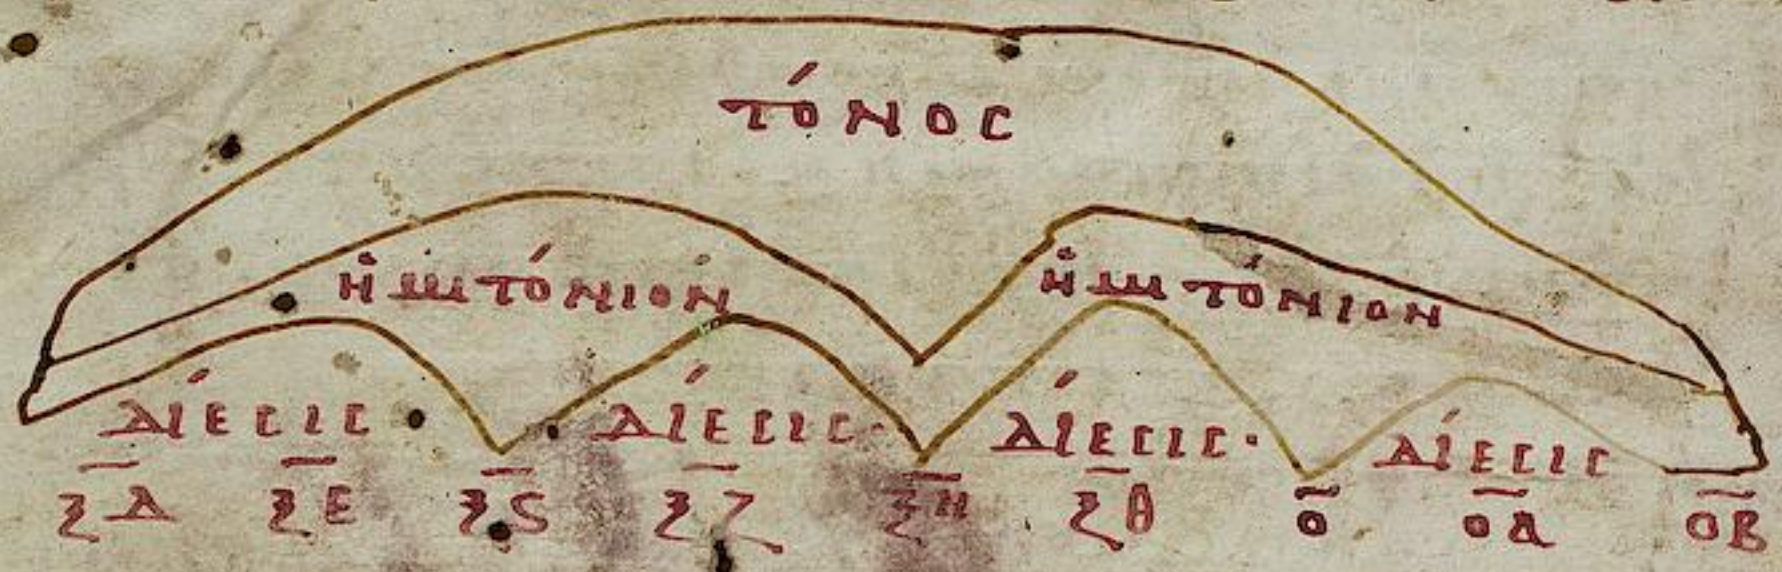 τόνος
ἡμιτόνιον ἡμιτόνιον
δίεσις δίεσις· δίεσις· δίεσις
ξ̅δ̅ ξ̅ε̅ ξ̅ϛ̅ ξ̅ζ̅ ξ̅η̅ ξ̅θ̅ ο̅ ο̅α̅ ο̅β̅